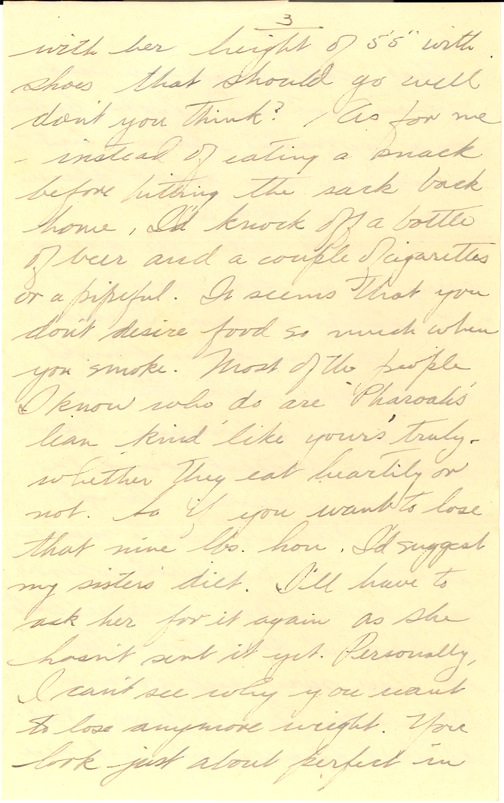 3
with her height of 5'5" with
shoes that should go well
don't you think? As for me
- instead of eating a snack
before hitting the sack back
home, I'd knock off a bottle
of beer and a couple of cigarettes
or a pipeful. It seems that you
don't desire food so much when
you smoke. Most of the people
I know who do are 'Pharoah's
lean kind' like yours' truly -
whether they eat heartily or
not. So if you want to lose
that nine lbs. hon, I'd suggest
my sisters diet. I'll have to
ask her for it again as she
hasn't sent it yet. Personally,
I can't see why you want
to lose anymore weight. You
look just about perfect in